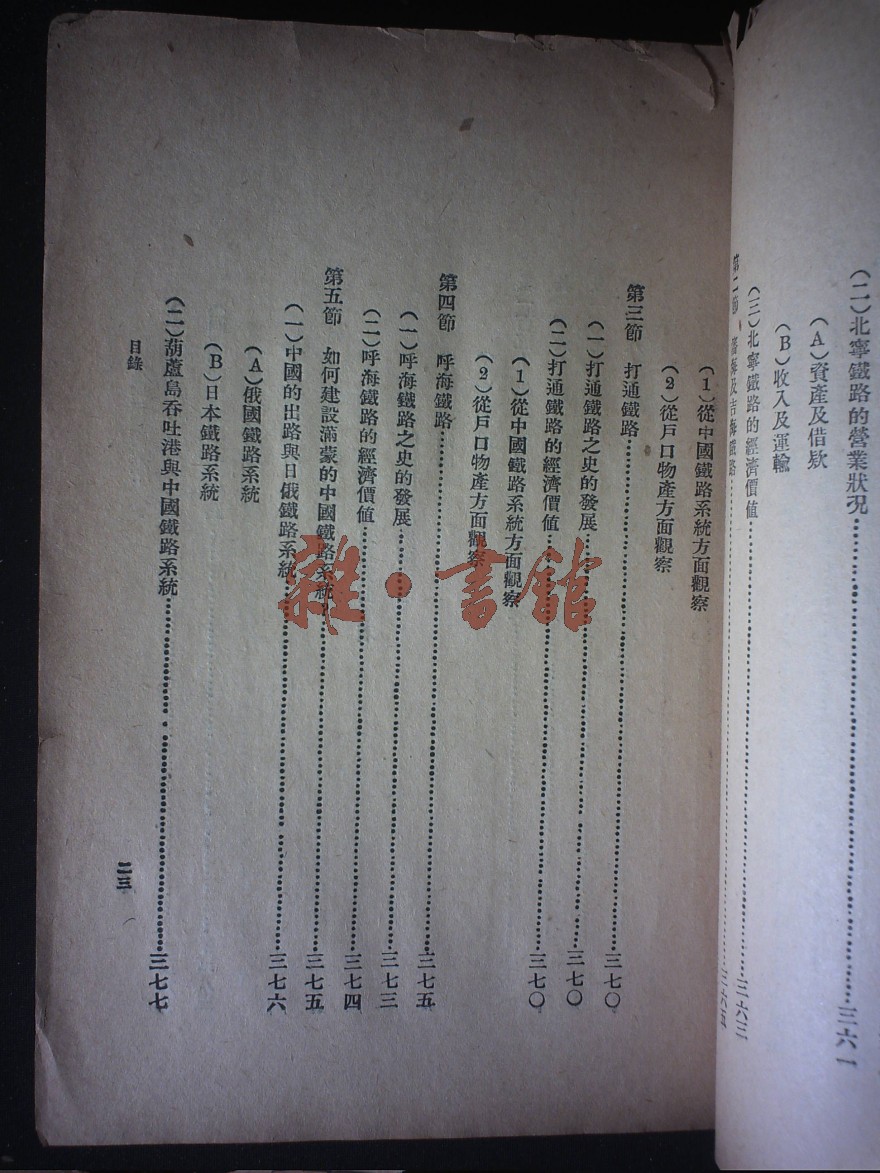 (二)北寧鐵路的營業狀况……三六一
(A)資產及借欵
(B)收入及運輸
(三)北寧鐵路的經濟價值……三六三
第二節 瀋海及吉海鐵路……
(1)從中國鐵路系統方面觀察
(2)從戶口物產方面觀察
第三節 打通鐵路……三七〇
(一)打通鐵路之史的發展……三七〇
(二)打通鐵路的經濟價值……三七〇
(1)從中國鐵路系統方面觀察
(2)從戶口物產方面觀察
第四節 呼海鐵路……三七五
(一)呼海鐵路之史的發展……三七三
(二)呼海鐵路的經濟價值……三七四
第五節 如何建設滿蒙的中國鐵路系統……三七五
(一)中國的出路與日俄鐵路系統……三七六
(A)俄國鐵路系統
(B)日本鐵路系統
(二)葫蘆島吞吐港與中國鐵路系統……三七七
目錄
二三
雜·書館